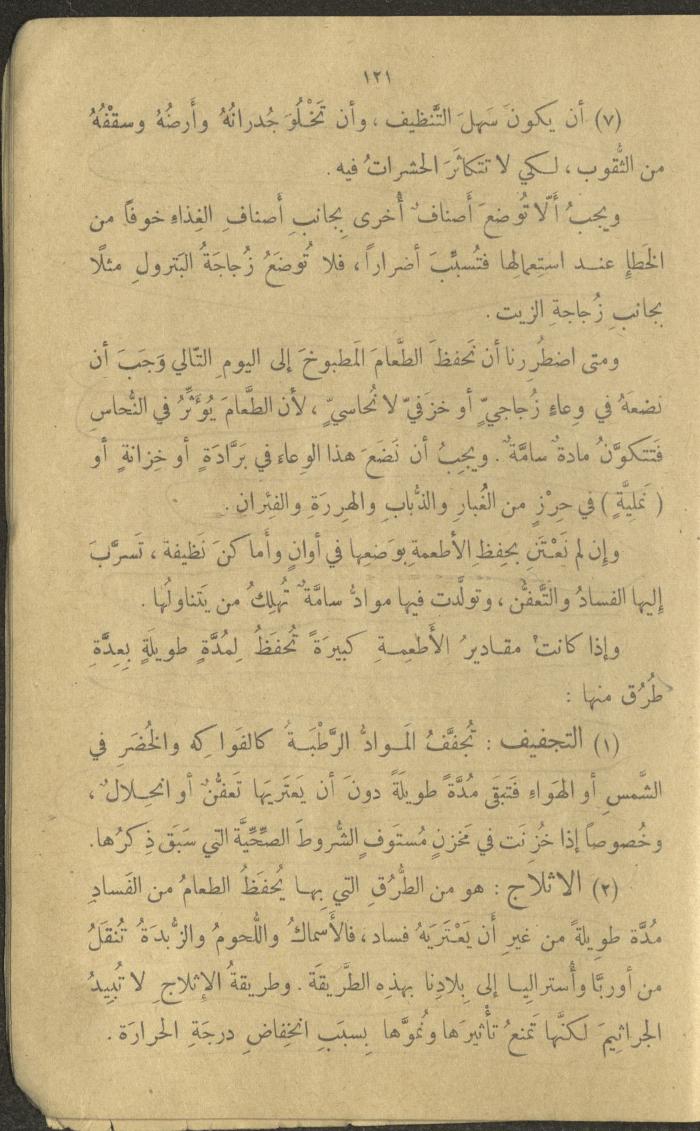 ١٢١
(٧) أن يكونَ سَهلَ التَّنظيف ، وأن تَخْلُوَ جُدرانُهُ وأَرضُهُ وسقْفُهُ
من الثُّقوب ، لـكي لا تتكاثَرَ الحشراتُ فيه .
ويجبُ أَلّا تُوضعَ أَصنافٌ أُخرى بِجانبِ أَصنافِ الغِذاءِ خوفاً من
الخَطإِ عنـد استِعمالِها فتُسبِّبَ أضراراً ، فلا تُوضَعُ زُجاجَةُ البَترولِ مثلًا
بجانبِ زُجاجةِ الزيت .
ومتى اضطُرِرنا أن نَحفظَ الطَّعامَ المَطبوخَ إلى اليومِ التّالي وَجَبَ أن
نضعَهُ في وِعاءٍ زُجاجيٍّ أو خزَفيّ لا نُحاسيٍّ ، لأن الطَّعامَ يُوَثِّرُ في النُّحاسِ
فَتَتكوَّنُ مادةٌ سامَّةٌ . ويجِبُ أن نَضَعَ هذا الوِعاءَ في بَرَّادَةٍ أو خِزانةٍ أو
( نَمليَّةٍ ) في حِرْزٍ من الغُبارِ والذُّبابِ والهِرَرةِ والفِئرانِ .
وإن لم نَعْتَنِ بحِفظِ الأطعمةِ بوَضعِها في أوانٍ وأَماكنَ نَظيفة ، تَسرَّبَ
إليها الفسادُ والتَّعفُّن ، وتولَّدت فيها موادُّ سامَّةٌ تُهلِكُ من يَتناولُها .
وإذا كانتْ مقـاديرُ الأَطعِمـةِ كبيرَةً تُحفَظُ لِمُدَّةٍ طويلَةٍ بِعِدَّةِ
طُرُق منها :
(١) التجفيف : تُجفَّفُ المَـوادُّ الرَّطْبَـةُ كالفَواكه والخُضَرِ في
الشَّمسِ أو الهَواءِ فَتبقَى مُدَّةً طويلَةً دونَ أن يَعتَريَها تَعفُّنٌ أو انحِـلالٌ ،
وخُصوصاً إذا خُزِنَت في مَخزنٍ مُستَوفٍ الشُّروطَ الصِّحِّيَّةَ التي سَبَقَ ذِكرُها.
(٢) الاثلاج : هو من الطُّرُقِ التي بِهـا يُحفَظُ الطعامُ من الفَسادِ
مُدَّة طويلةً من غيرِ أن يَعْتَرَيَهُ فساد ، فالأَسماكُ واللُّحومُ والزُّبدَةُ تُنقَلُ
من أوربَّا وأُستراليـا إلى بِلادِنا بهذِه الطَّريقَة . وطريقةُ الإثلاجِ لا تُبِيدُ
الجراثيمَ لكنَّها تَمنعُ تأْثيرَها ونُموَّها بِسبَبِ انخِفاضِ درجَةِ الحرارَة .